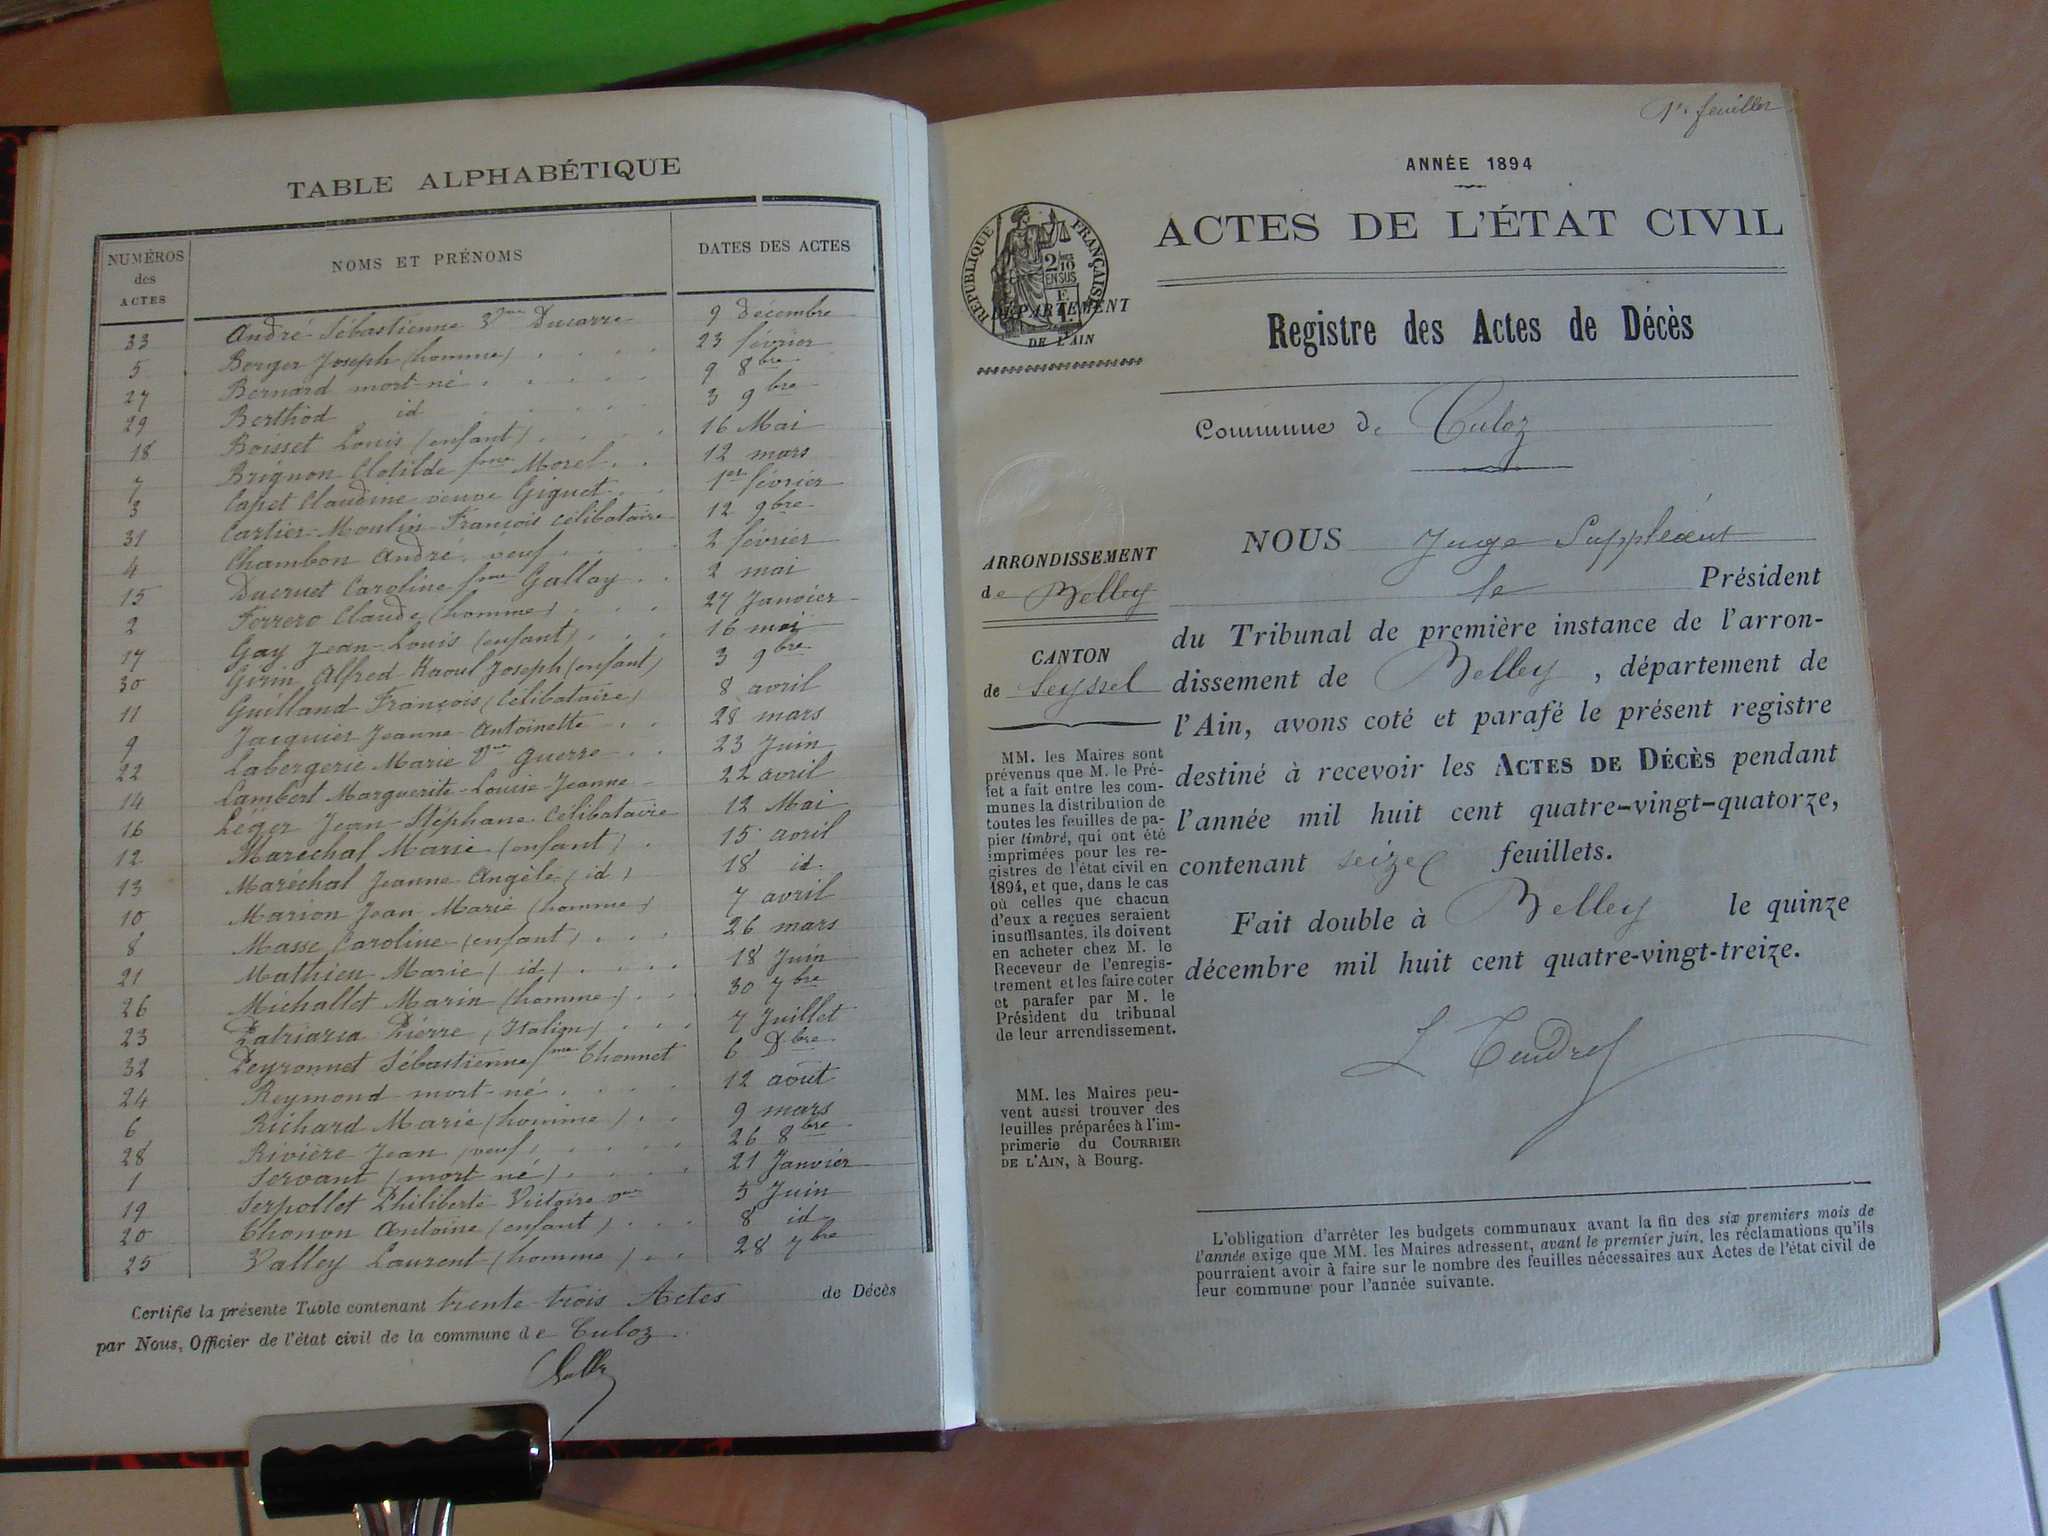 TABLE ALPHABÉTIQUE
NUMÉROS des ACTES NOMS ET PRÉNOMS DATES DES ACTES
33 André Sébastienne Vve Ducarre 9 décembre
5 Berger Joseph (homme) 23 février
27 Bernard mort-né 9 8bre
29 Berthod id 3 9bre
18 Boisset Louis (enfant) 16 Mai
7 Brignon Clotilde fme Morel 12 mars
3 Capet Claudine veuve Giguet 1er février
31 Cartier-Moulin François célibataire 12 9bre
4 Chambon André veuf 2 février
15 Ducruet Caroline fme Gallay 2 mai
2 Ferrero Claude (homme) 27 Janvier
17 Gay Jean-Louis (enfant) 16 mai
30 Girin Alfred Raoul Joseph (enfant) 3 9bre
11 Guilland François (Célibataire) 8 avril
9 Jacquier Jeanne-Antoinette 28 mars
22 Labergerie Marie Vve Guerre 23 Juin
14 Lambert Marguerite-Louise-Jeanne 22 avril
16 Léger Jean-Stéphane Célibataire 12 Mai
12 Maréchal Marie (enfant) 15 avril
13 Maréchal Jeanne Angèle (id) 18 id.
10 Marion Jean Marie (homme) 7 avril
8 Masse Caroline (enfant) 26 mars
21 Mathieu Marie (id) 18 Juin
26 Michallet Marin (homme) 30 7bre
23 Patriarca Pierre (Italien) 7 Juillet
32 Peyronnet Sébastienne fme Thonnet 6 Dbre
24 Reymond mort-né 12 août
6 Richard Marie (homme) 9 mars
28 Rivière Jean (veuf) 26 8bre
1 Servant (mort né) 21 Janvier
19 Serpollet Philiberte Victoire vve 5 Juin
20 Thonon Antoine (enfant) 8 id
25 Valley Laurent (homme) 28 7bre
Certifié la présente Table contenant trente-trois Actes de Décès
par Nous, Officier de l'état civil de la commune de Culoz
1er feuillet
ANNÉE 1894
ACTES DE L'ÉTAT CIVIL
RÉPUBLIQUE FRANÇAISE
2 10 EN SUS
DÉPARTEMENT
DE L'AIN
Registre des Actes de Décès
Commune de Culoz
ARRONDISSEMENT
de Belley
CANTON
de Seyssel
MM. les Maires sont
prévenus que M. le Pré-
fet a fait entre les com-
munes la distribution de
toutes les feuilles de pa-
pier timbré, qui ont été
imprimées pour les re-
gistres de l'état civil en
1894, et que, dans le cas
où celles que chacun
d'eux a reçues seraient
insuffisantes, ils doivent
en acheter chez M. le
Receveur de l'enregis-
trement et les faire coter
et parafer par M. le
Président du tribunal
de leur arrendissement.
MM. les Maires peu-
vent aussi trouver des
feuilles préparées à l'im-
primerie du COURRIER
DE L'AIN, à Bourg.
NOUS Juge Suppléant
le Président
du Tribunal de première instance de l'arron-
dissement de Belley, département de
l'Ain, avons coté et parafé le présent registre
destiné à recevoir les ACTES DE DÉCÈS pendant
l'année mil huit cent quatre-vingt-quatorze,
contenant seize feuillets.
Fait double à Belley le quinze
décembre mil huit cent quatre-vingt-treize.
L'obligation d'arrêter les budgets communaux avant la fin des six premiers mois de
l'année exige que MM. les Maires adressent, avant le premier juin, les réclamations qu'ils
pourraient avoir à faire sur le nombre des feuilles nécessaires aux Actes de l'état civil de
leur commune pour l'année suivante.